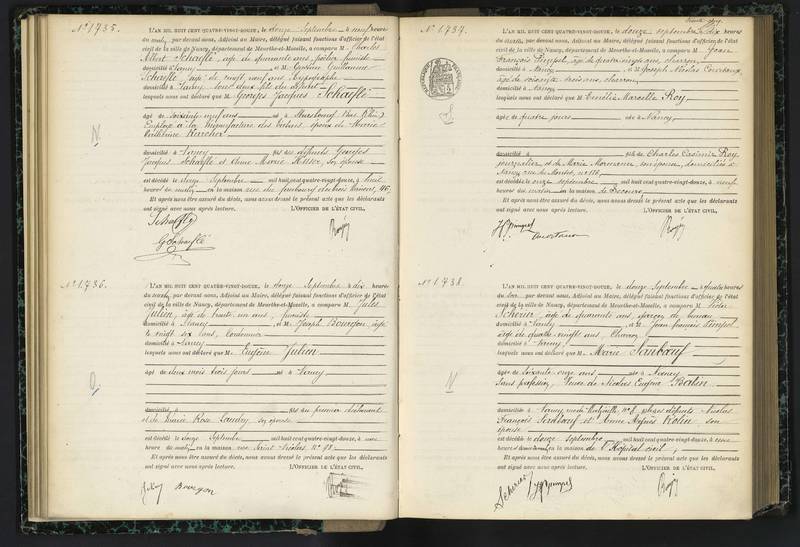 N° 1735.
L'AN MIL HUIT CENT QUATRE-VINGT-DOUZE, le douze Septembre à neuf heures
du matin, par devant nous, Adjoint au Maire, délégué faisant fonctions d'officier de l'état
civil de la ville de Nancy, département de Meurthe-et-Moselle, a comparu M. Charles
Albert Schaeflé, âgé de quarante ans,
domicilié à Nancy, et M. Guillaume
Schaeflé, âgé de vingt neuf ans, typographe
domicilié à Nancy, tous deux fils du défunt
lesquels nous ont déclaré que M. Georges Jacques Schaeflé
âgé de soixante neuf ans né à Strasbourg (Bas Rhin)
Employé à la Manufacture des tabacs, époux de Marie
Catherine Kercher
domicilié à Nancy fils des défunts Georges
Jacques Schaeflé et Anne Marie son épouse
est décédé le douze Septembre mil huit cent quatre-vingt-douze, à huit
heures du matin en la maison rue du faubourg des trois maisons, 96,
Et après nous être assuré du décès, nous avons dressé le présent acte que les déclarants
ont signé avec nous après lecture. L'OFFICIER DE L'ÉTAT CIVIL,
Schaeflé
G. Schaeflé
N
N° 1736.
L'AN MIL HUIT CENT QUATRE-VINGT-DOUZE, le douze Septembre à dix heures
du matin, par devant nous, Adjoint au Maire, délégué faisant fonctions d'officier de l'état
civil de la ville de Nancy, département de Meurthe-et-Moselle, a comparu M. Jules
Julien, âgé de trente un ans,
domicilié à Nancy, et M. Joseph Bourgon, âgé
de vingt six ans, Cordonnier
domicilié à Nancy
lesquels nous ont déclaré que M. Eugène Julien
âgé de deux mois trois jours né à Nancy
domicilié à fils du premier déclarant
et de Marie Rose Laudry son épouse
est décédé le douze Septembre mil huit cent quatre-vingt-douze, à une
heure du matin en la maison rue Saint Nicolas n° 92
Et après nous être assuré du décès, nous avons dressé le présent acte que les déclarants
ont signé avec nous après lecture. L'OFFICIER DE L'ÉTAT CIVIL,
Bourgon
N° 1737.
L'AN MIL HUIT CENT QUATRE-VINGT-DOUZE, le douze septembre à dix heures
du matin, par devant nous, Adjoint au Maire, délégué faisant fonctions d'officier de l'état
civil de la ville de Nancy, département de Meurthe-et-Moselle, a comparu M. Jean
François Pimpel, âgé de quatre vingts ans, charron
domicilié à Nancy, et M. Joseph Nicolas
âgé de soixante trois ans, charron
domicilié à Nancy
lesquels nous ont déclaré que M. Emélie Marcelle Roy
âgée de quatre jours née à Nancy,
domicilié à fille de Charles Casimir Roy
journalier, et de Marie son épouse, domiciliés à
Nancy, n° 116,
est décédée le onze septembre mil huit cent quatre-vingt-douze, à neuf
heures du matin en la maison de Secours,
Et après nous être assuré du décès, nous avons dressé le présent acte que les déclarants
ont signé avec nous après lecture. L'OFFICIER DE L'ÉTAT CIVIL,
N° 1738.
L'AN MIL HUIT CENT QUATRE-VINGT-DOUZE, le douze Septembre à quatre heures
du soir par devant nous, Adjoint au Maire, délégué faisant fonctions d'officier de l'état
civil de la ville de Nancy, département de Meurthe-et-Moselle, a comparu M. Victor
Scherier, âgé de quarante ans, garçon de bureau
domicilié à Nancy, et M. Jean François Pimpel
âgé de quatre-vingts ans, Charron
domicilié à Nancy,
lesquels nous ont déclaré que M. Marie
âgée de soixante onze ans née à Nancy
Sans profession, Veuve de Nicolas Eugène
domiciliée à Nancy n° 8, fille des défunts Nicolas
François et Anne son
épouse
est décédée le douze Septembre mil huit cent quatre-vingt-douze, à une
heure en la maison de l'Hôpital civil,
Et après nous être assuré du décès, nous avons dressé le présent acte que les déclarants
ont signé avec nous après lecture. L'OFFICIER DE L'ÉTAT CIVIL,
Scherier
N